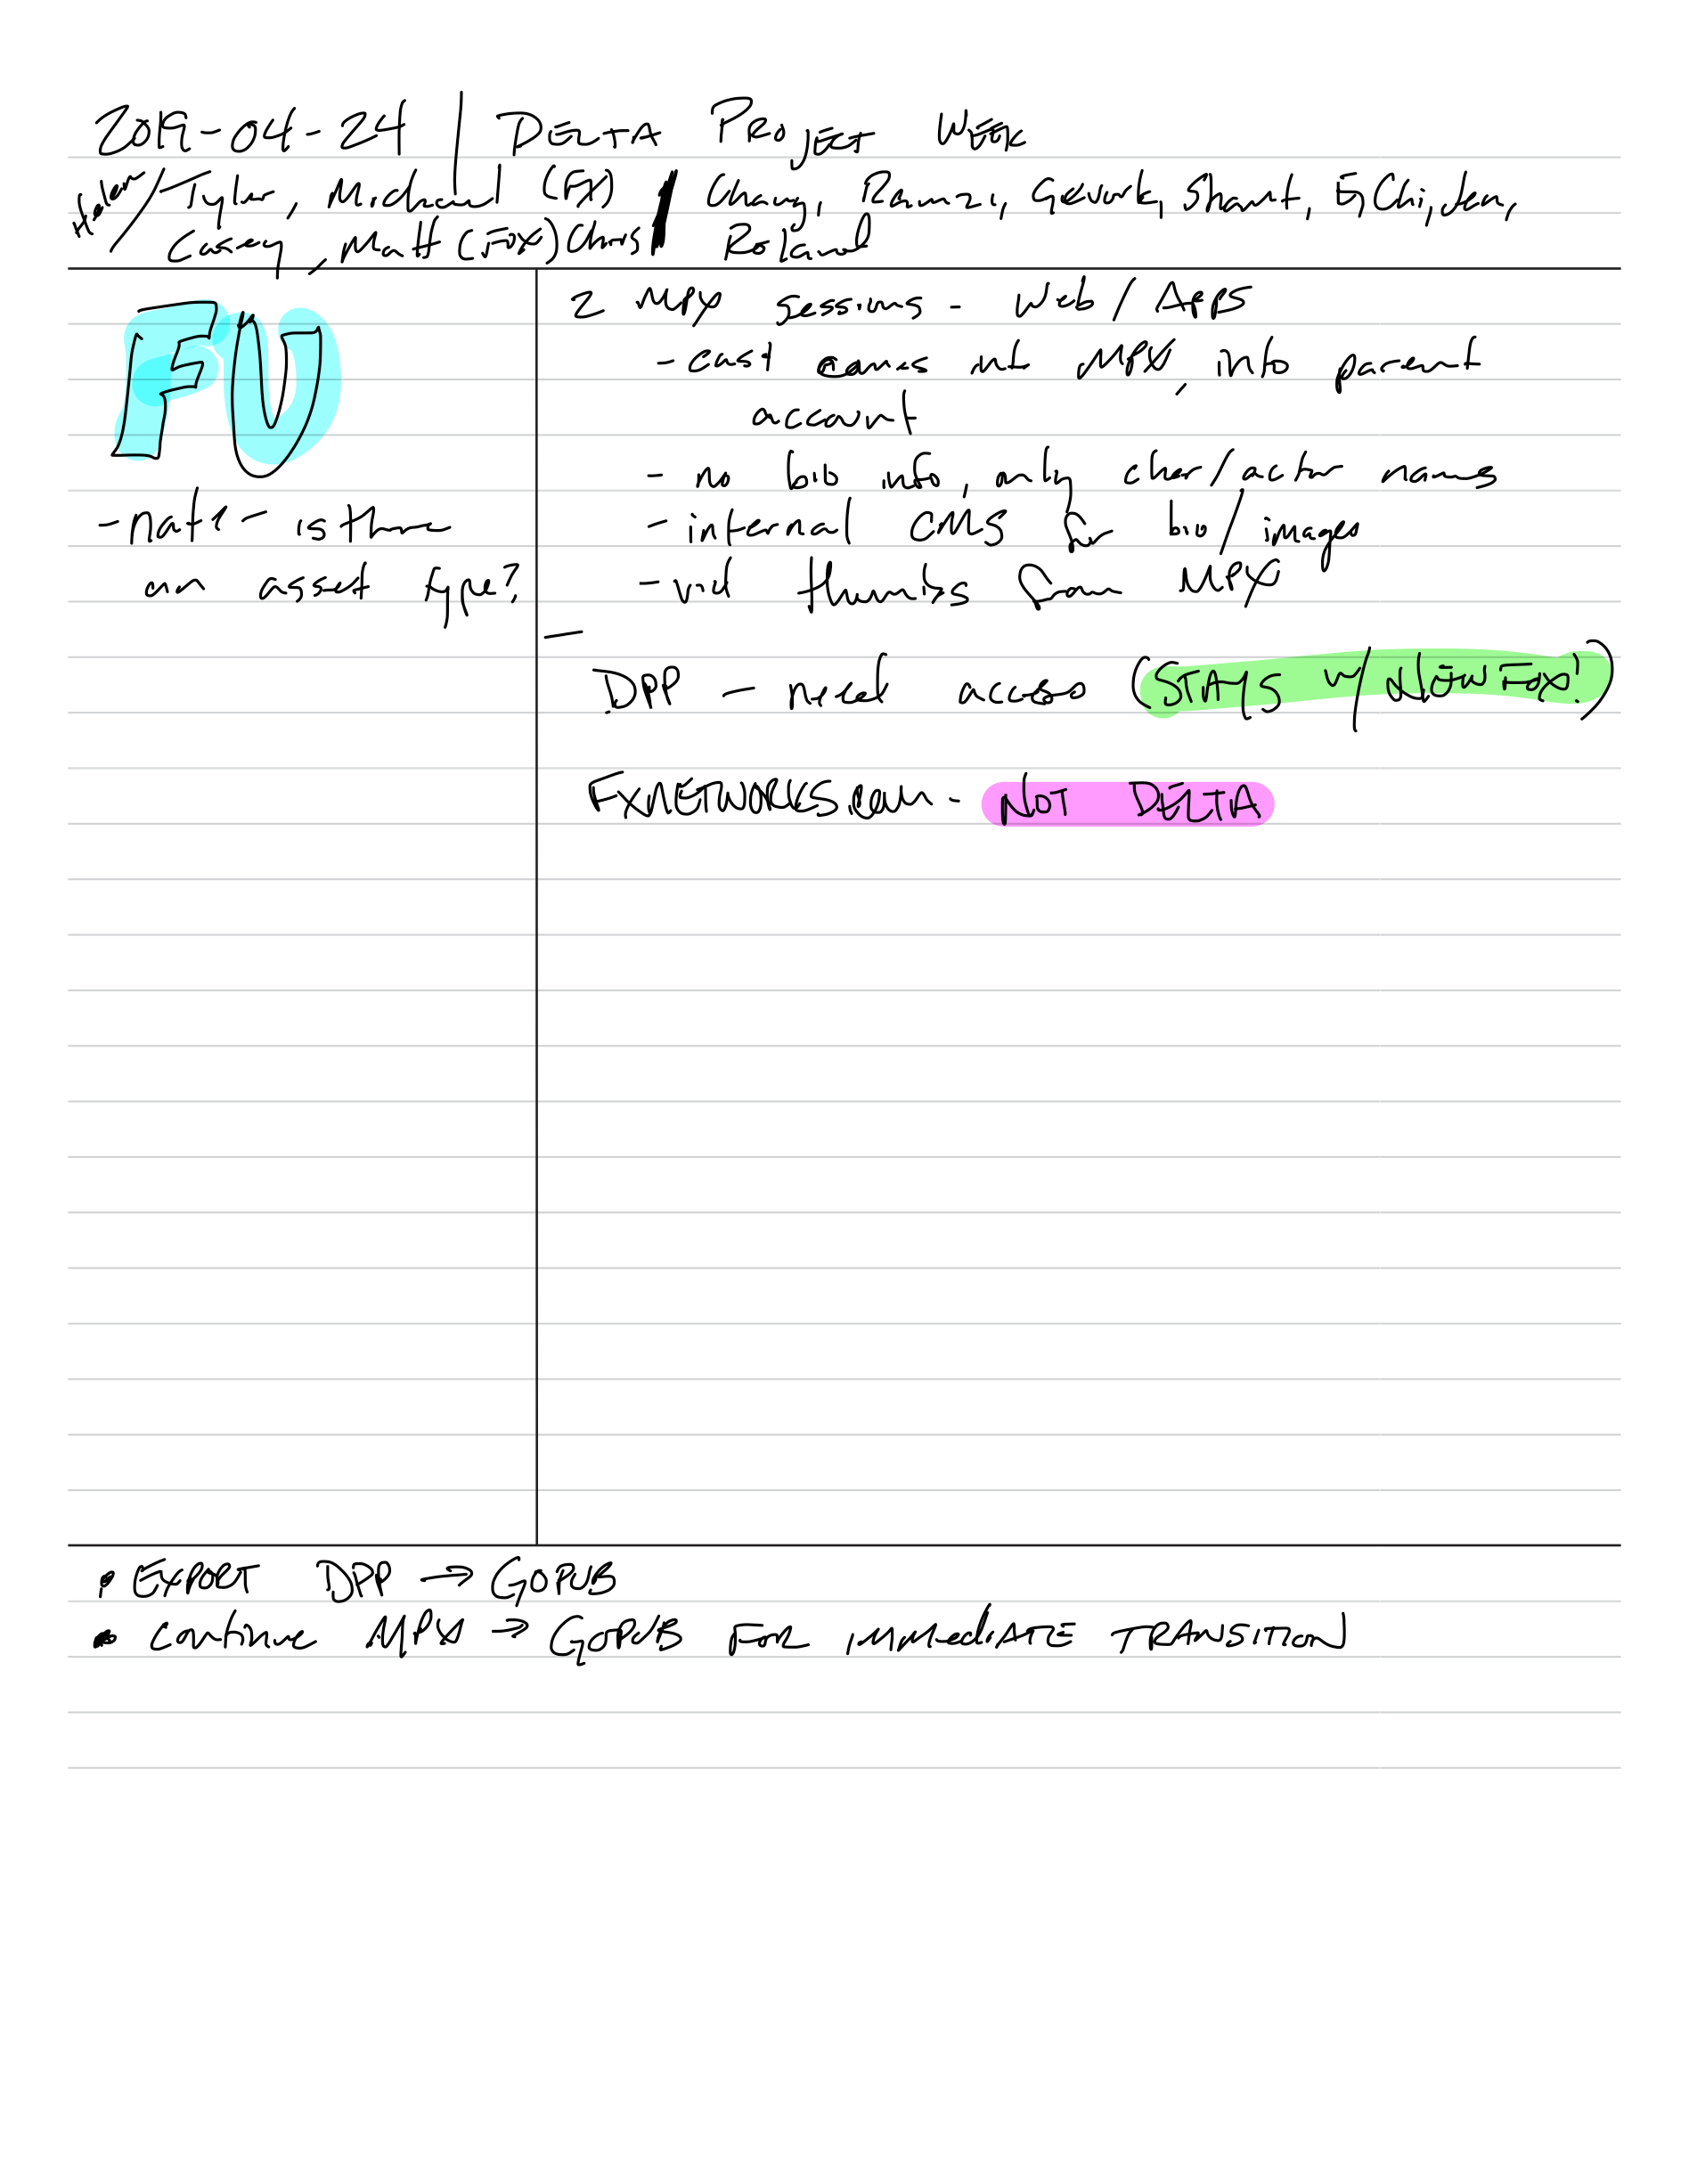 2019-04-24 | DELTA PROJECT WEEK
Helen / Tyler, Michael (FX) Chang, Ramzi, Gevork, Shant, EJ Chi, Jen,
Casey, Matt (FOX) Chris Roland
FU
- nat1 - is there
an asset type?
2 MPX sessions - Web/Apps
- cast names into MPX, into parent
account
- no bio info, only char/actor names
- internal CMS for bio/images
- vid thumbs from MPX
—
DPP - need access (STAYS w/ NEW FOX!)
FXNETWORKS.com - NOT DELTA
• EXPORT DPP → GOPUB
• continue MPX → GOPUB FOR IMMEDIATE TRANSITION